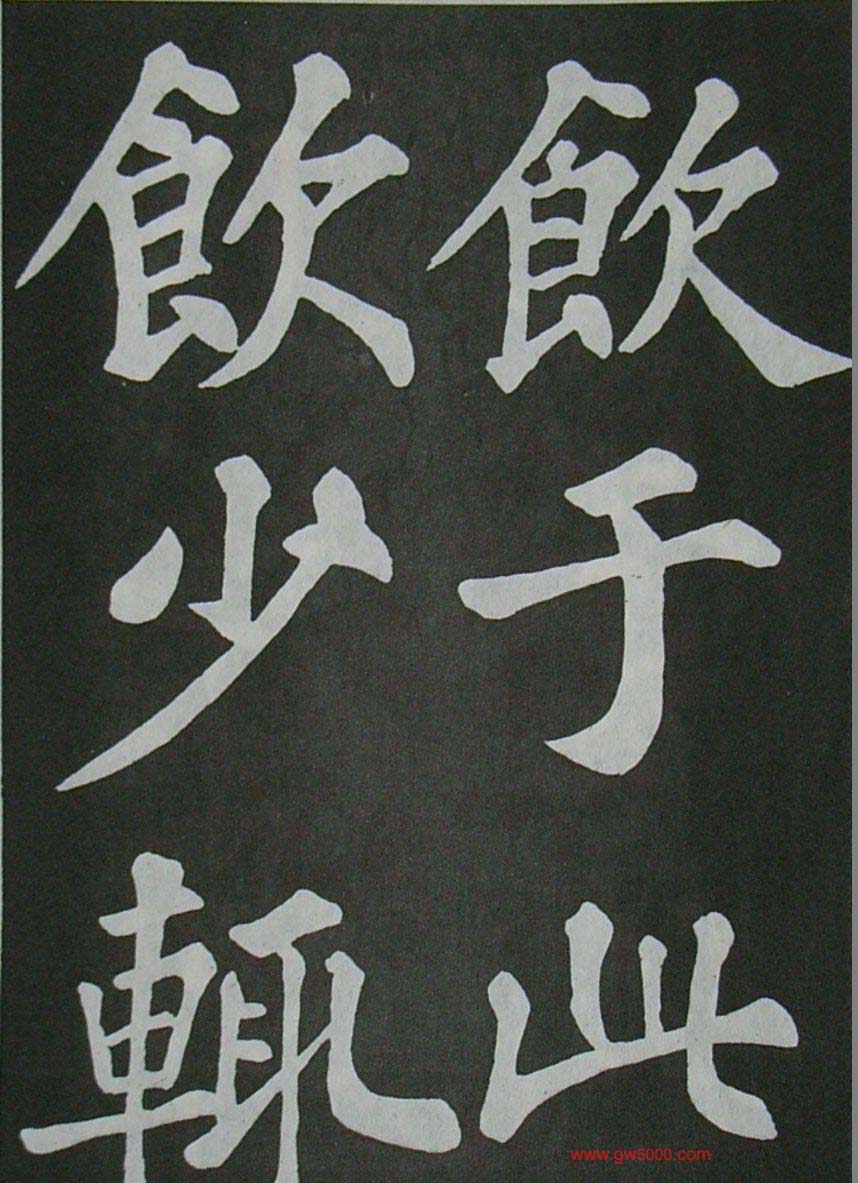 飲于此
飲少輒
www.gw5000.com